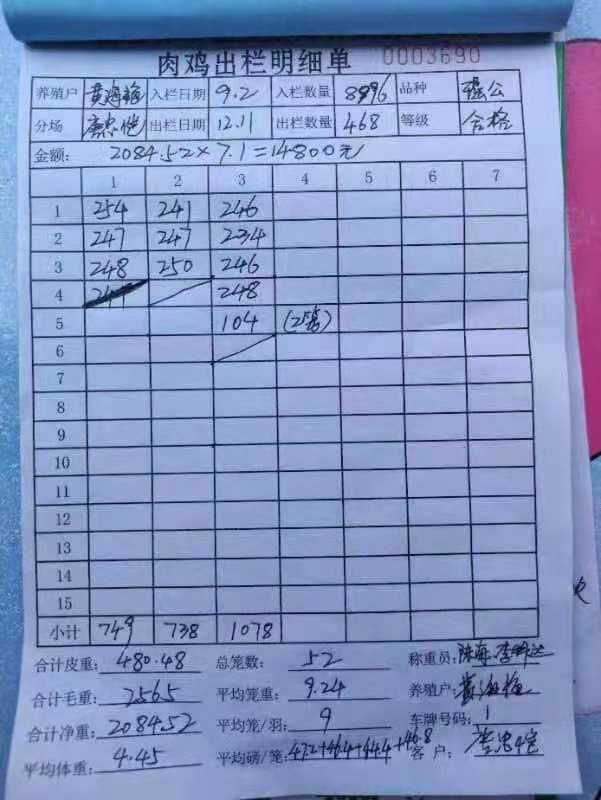 肉鸡出栏明细单 0003690
养殖户 黄海梅 入栏日期 9.2 入栏数量 8996 品种 强公
分场 出栏日期 12.11 出栏数量 468 等级 合格
金额: 2084.52×7.1=14800元
1 2 3 4 5 6 7
1 254 241 246
2 247 247 234
3 248 250 246
4 248
5 104 (2笼)
6
7
8
9
10
11
12
13
14
15
小计 749 738 1078
合计皮重: 480.48 总笼数: 52 称重员:
合计毛重: 2565 平均笼重: 9.24 养殖户: 黄海梅
合计净重: 2084.52 平均笼/羽: 9 车牌号码: 1
平均体重: 4.45 平均磅/笼: 47.2+46.4+44.4+46.8 客户: